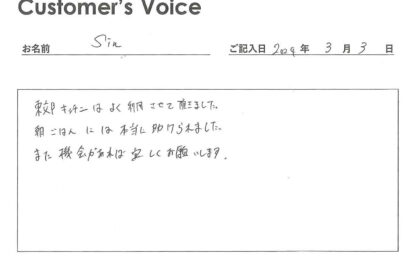 Customer's Voice
お名前 Sin ご記入日 年 3 月 3 日
キッチン は よく 利用 させて 頂きました。
朝 ごはん に は 本当に 助けられました。
また 機会があれば 宜しくお願いします。